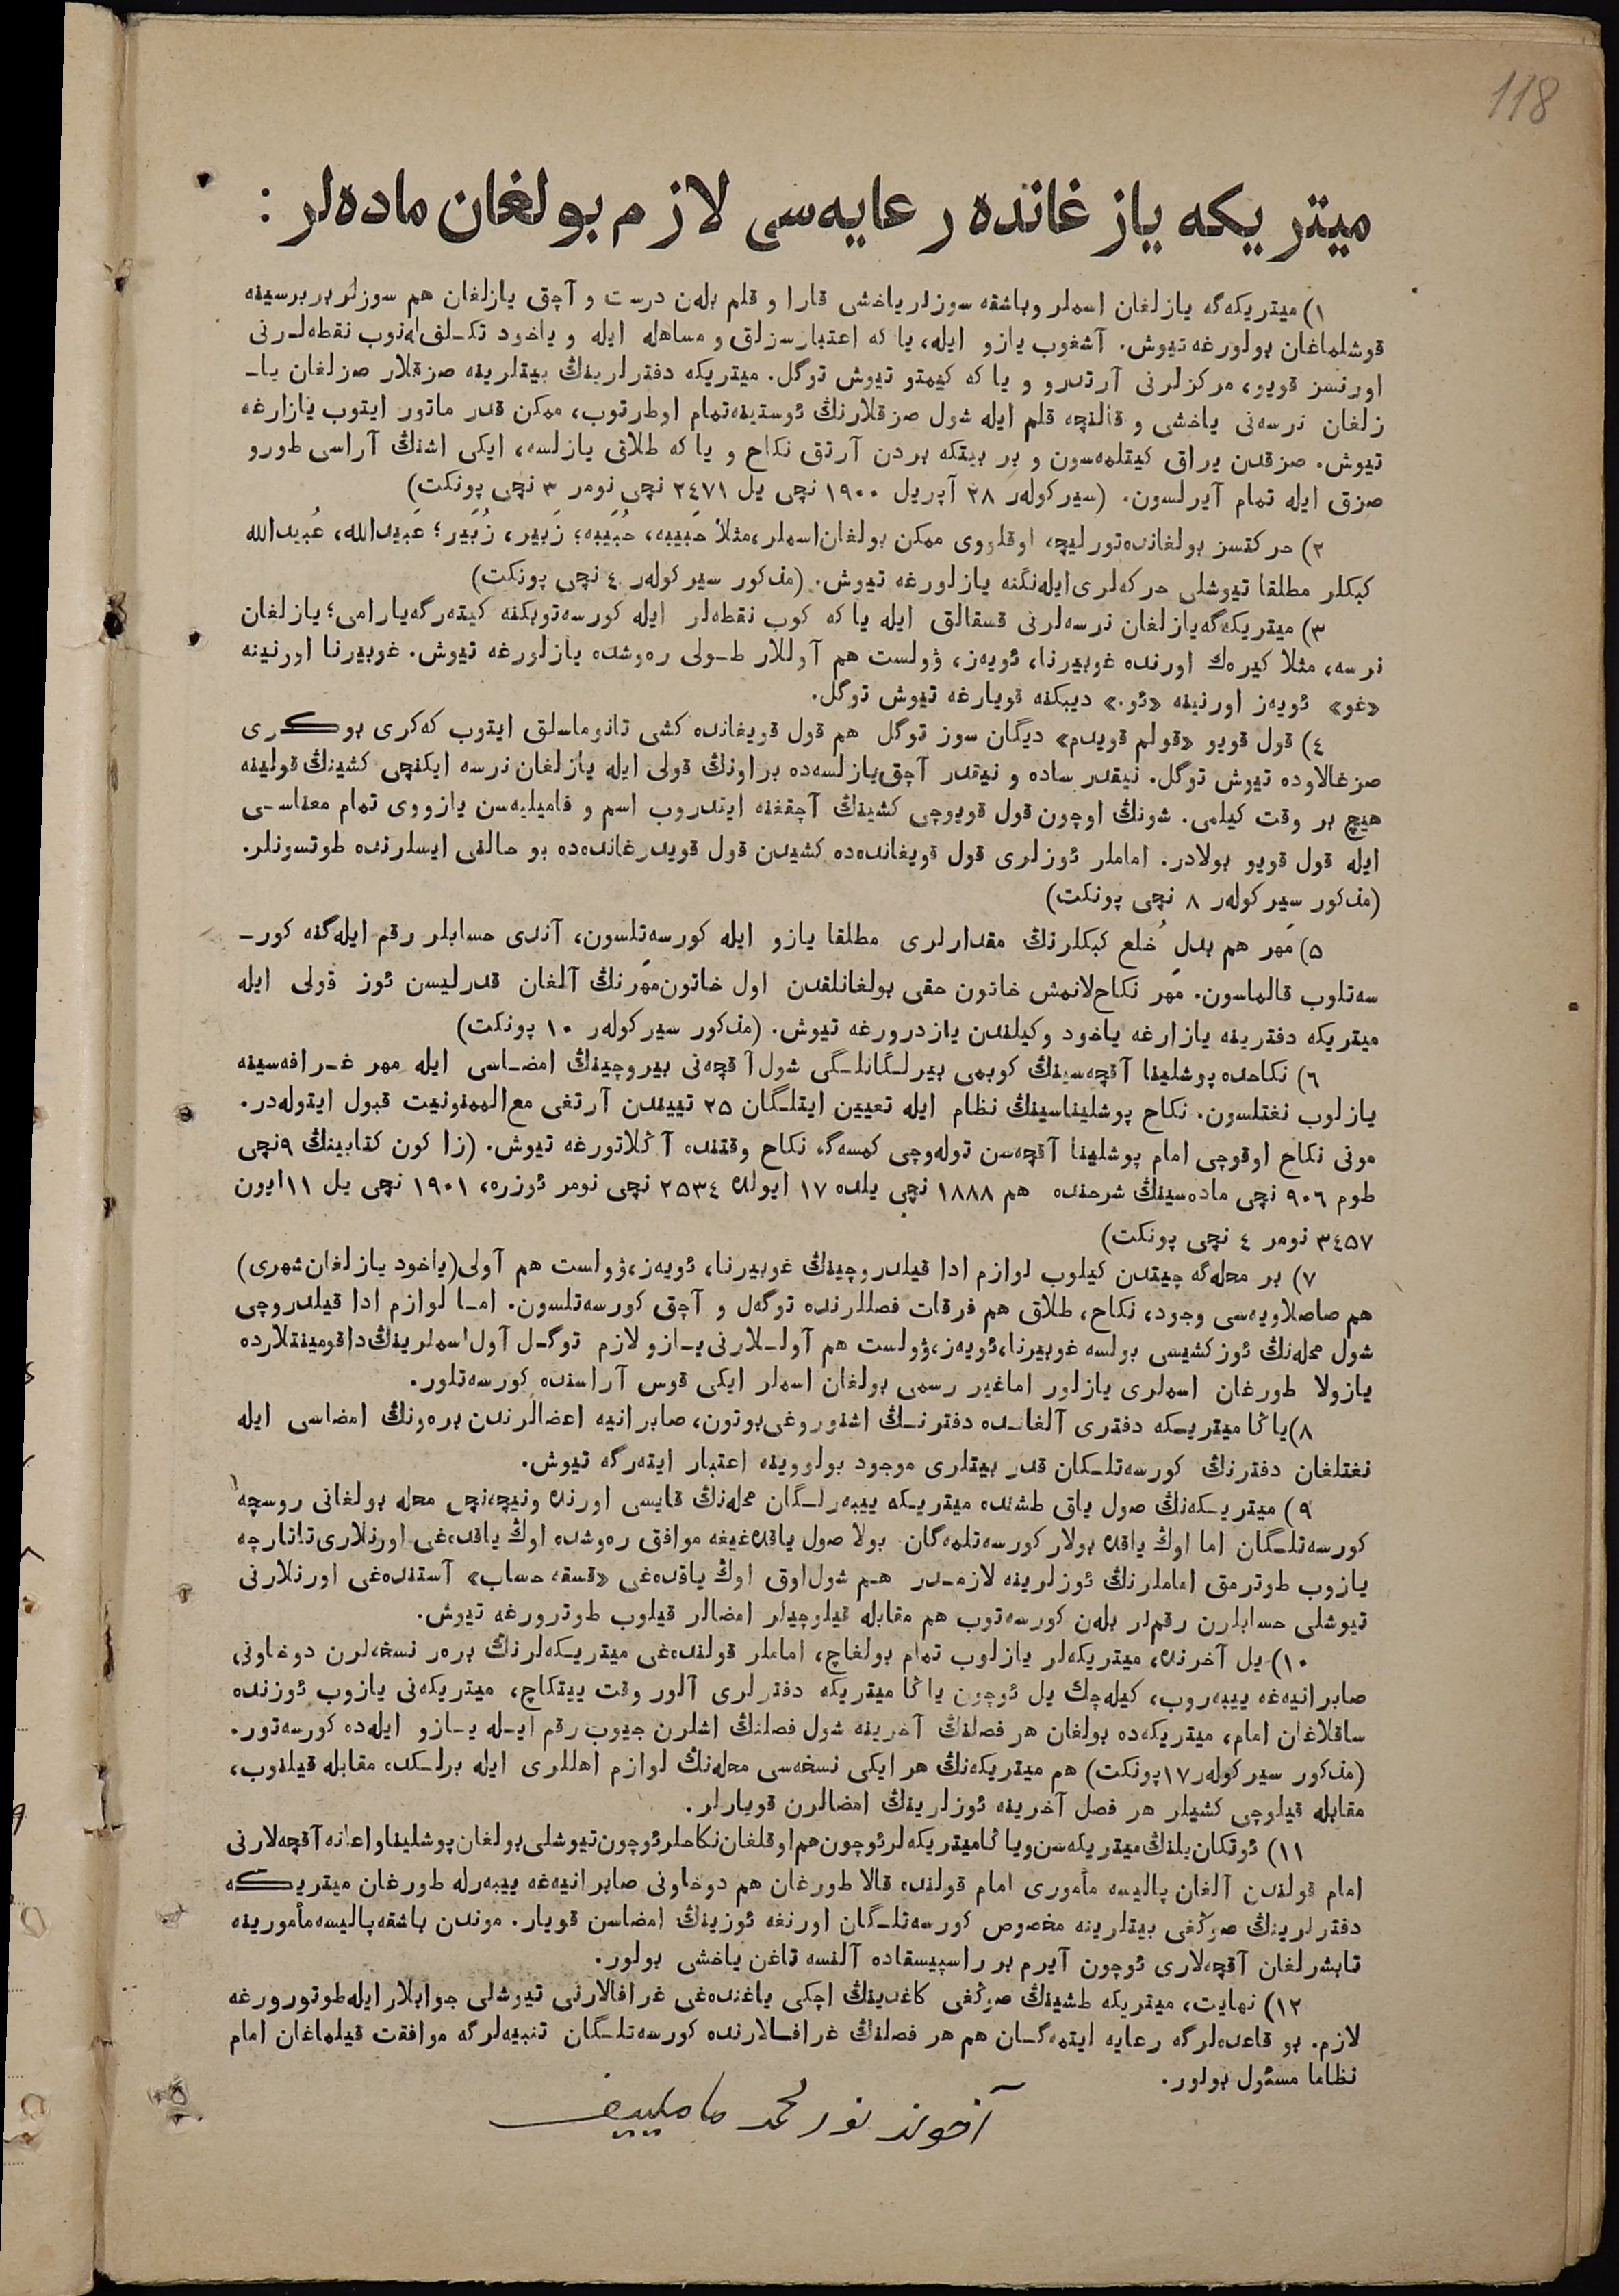 118
ميتريكه يازغانده رعايه‌سى لازم بولغان ماده‌لر :
١) ميتريكه‌گه يازلغان اسملر وباشقه سوزلر ياخشى قارا و قلم بله‌ن درست و آچق يازلغان هم سوزلر بربرسينه
قوشلماغان بولورغه تيوش. آشغوب يازو ايله، ياكه اعتبارسزلق و مساهله ايله و ياخود تكـلف ايله‌نوب نقطه‌لـرنى
اورنسز قويو، مركزلرنى آرتدرو و ياكه كيمتو تيوش توگل. ميتريكه دفترلرينڭ بيتلرينه صزقلار صزلغان ياـ
زلغان نرسه‌نى ياخشى و قالنچه قلم ايله شول صزقلارنڭ ئوستينه‌تمام اوطرتوب، ممكن قدر ماتور ايتوب يازارغه
تيوش. صزقدن يراق كيتلمه‌سون و بر بيتكه بردن آرتق نكاح و ياكه طلاق يازلسه، ايكى اشنڭ آراسى طورو
صزق ايله تمام آيرلسون. (سيركوله‌ر ٢٨ آپريل ١٩٠٠ نچى يل ٢٤٧١ نچى نومر ٣ نچى پونكت)
٢) حركتسز بولغانده‌تورليچه اوقلووى ممكن بولغان‌اسملر،مثلا حَبيبه، حُبَيبه؛ زَبير، زُبَير؛ عَبيدالله، عُبيدالله
كبكلر مطلقا تيوشلى حركه‌لرى‌ايله‌نگنه يازلورغه تيوش. (مذكور سيركوله‌ر ٤ نچى پونكت)
٣) ميتريكه‌گه‌يازلغان نرسه‌لرنى قسقالق ايله ياكه كوب نقطه‌لر ايله كورسه‌توبكنه كيته‌رگه‌يارامى؛ يازلغان
نرسه، مثلا كيره‌ك اورنده غوبيرنا، ئويه‌ز، ۋولست هم آوللار طـولى ره‌وشده يازلورغه تيوش. غوبيرنا اورنينه
«غو» ئويه‌ز اورنينه «ئو.» ديبكنه قويارغه تيوش توگل.
٤) قول قويو «قولم قويدم» ديگان سوز توگل هم قول قويغانده كشى تانوماسلق ايتوب كه‌كرى بوكرى
صزغالاوده تيوش توگل. نيقدر ساده و نيقدر آچق‌يازلسه‌ده براونڭ قولى ايله يازلغان نرسه ايكنچى كشينڭ قولينه
هيچ بر وقت كيلمى. شونڭ اوچون قول قويوچى كشينڭ آچقغنه ايتدروب اسم و فاميليه‌سن يازووى تمام معناسـى
ايله قول قويو بولادر. اماملر ئوزلرى قول قويغانده‌ده كشيدن قول قويدرغانده‌ده بو حالنى ايسلرنده طوتسونلر.
(مذكور سيركوله‌ر ٨ نچى پونكت)
٥) مَهر هم بدلِ خُلع كبكلرنڭ مقدارلرى مطلقا يازو ايله كورسه‌تلسون، آندى حسابلر رقم ايله‌گنه كورـ
سه‌تلوب قالماسون. مَهر نكاح‌لانمش خاتون حقى بولغانلقدن اول خاتون‌مَهرنڭ آلغان قدرليسن ئوز قولى ايله
ميتريكه دفترينه يازارغه ياخود وكيلندن يازدرورغه تيوش. (مذكور سيركوله‌ر ١٠ پونكت)
٦) نكاحده پوشلينا آقچه‌سينڭ كوبمى بيرلـگانلـگى شول آقچه‌نى بيروچينڭ امضـاسى ايله مهر غـرافه‌سينه
يازلوب نغتلسون. نكاح پوشليناسينڭ نظام ايله تعيين ايتلـگان ٢٥ تييندن آرتغى مع‌الممنونيت قبول ايتوله‌در.
مونى نكاح اوقوچى امام پوشلينا آقچه‌سن توله‌وچى كمسه‌گه نكاح وقتنده آڭلاتورغه تيوش. (زاكون كتابينڭ ٩نچى
طوم ٩٠٦ نچى ماده‌سينڭ شرحنده هم ١٨٨٨ نچى يلده ١٧ ايولده ٢٥٣٤ نچى نومر ئوزره، ١٩٠١ نچى يل ١١ايون
٣٤٥٧ نومر ٤ نچى پونكت)
٧) بر محله‌گه چيتدن كيلوب لوازم ادا قيلدروچينڭ غوبيرنا، ئويه‌ز،ۋولست هم آولى(ياخود يازلغان‌شهرى)
هم صاصلاويه‌سى وجود، نكاح، طلاق هم فرقات فصللرنده توگه‌ل و آچق كورسه‌تلسون. امـا لوازم ادا قيلدروچى
شول محله‌نڭ ئوزكشيسى بولسه غوبيرنا،ئويه‌ز،ۋولست هم آولـلارنى يـازو لازم توگـل آول اسملرينڭ‌داقومينتلارده
يازولا طورغان اسملرى يازلور اماغير رسمى بولغان اسملر ايكى قوس آراسنده كورسه‌تلور.
٨)ياڭا ميتريـكه دفترى آلغانـده دفترنـڭ اشنوروغى‌بوتون، صابرانيه اعضالرندن بره‌ونڭ امضاسى ايله
نغتلغان دفترنڭ كورسه‌تلـكان قدر بيتلرى موجود بولووينه اعتبار ايته‌رگه تيوش.
٩) ميتريـكه‌نڭ صول ياق طشنده ميتريـكه ييبه‌رلـگان محله‌نڭ قايسى اورنده ونيچه‌نچى محله بولغانى روسچه
كورسه‌تلـگان اما اوڭ ياقده بولار كورسه‌تلمه‌گان. بولا صول ياقده‌غيغه موافق ره‌وشده اوڭ ياقده‌غى اورنلارى‌تاتارچه
يازوب طوترمق اماملرنڭ ئوزلرينه لازمـدر هـم شول‌اوق اوڭ ياقده‌غى «قسقه حساب» آستنده‌غى اورنلارنى
تيوشلى حسابلرن رقملر بله‌ن كورسه‌توب هم مقابله قيلوچيلر امضالر قيلوب طوترورغه تيوش.
١٠) يل آخرنده، ميتريكه‌لر يازلوب تمام بولغاچ، اماملر قولنده‌غى ميتريـكه‌لرنڭ بره‌ر نسخه‌لرن دوخاونى
صابرانيه‌غه ييبه‌روب، كيله‌چك يل ئوچون ياڭا ميتريكه دفترلرى آلور وقت ييتكاچ، ميتريكه‌نى يازوب ئوزنده
ساقلاغان امام، ميتريكه‌ده بولغان هر فصلنڭ آخرينه شول فصلنڭ اشلرن جيوب رقم ايـله يـازو ايله‌ده كورسه‌تور.
(مذكور سيركوله‌ر١٧پونكت) هم ميتريكه‌نڭ هر ايكى نسخه‌سى محله‌نڭ لوازم اهللرى ايله برلـكده مقابله قيلنوب،
مقابله قيلوچى كشيلر هر فصل آخرينه ئوزلرينڭ امضالرن قويارلر.
١١) ئوتكان يلنڭ ميتريكه‌سن وياڭاميتريكه‌لرئوچون‌هم‌اوقلغان‌نكاحلرئوچون‌تيوشلى‌بولغان‌پوشلينا‌واعانه آقچه‌لارنى
امام قولندن آلغان پاليسه مأمورى امام قولنده قالا طورغان هم دوخاونى صابرانيه‌غه ييبه‌رله طورغان ميتريكه
دفترلرينڭ صوڭغى بيتلرينه مخصوص كورسه‌تلـگان اورنغه ئوزينڭ امضاسن قويار. موندن باشقه پاليسه مأمورينه
تابشرلغان آقچه‌لارى ئوچون آيرم بر راسپيسقاده آلنسه تاغن ياخشى بولور.
١٢) نهايت، ميتريكه طشينڭ صوڭغى كاغدينڭ اچكى ياغنده‌غى غرافالارنى تيوشلى جوابلار ايله طوتورورغه
لازم. بو قاعده‌لرگه رعايه ايتمه‌گـان هم هر فصلنڭ غرافـالارنده كورسه‌تلـگان تنبيه‌لرگه موافقت قيلماغان امام
نظاما مسئول بولور.
آخوند نورمحمد ماملييف